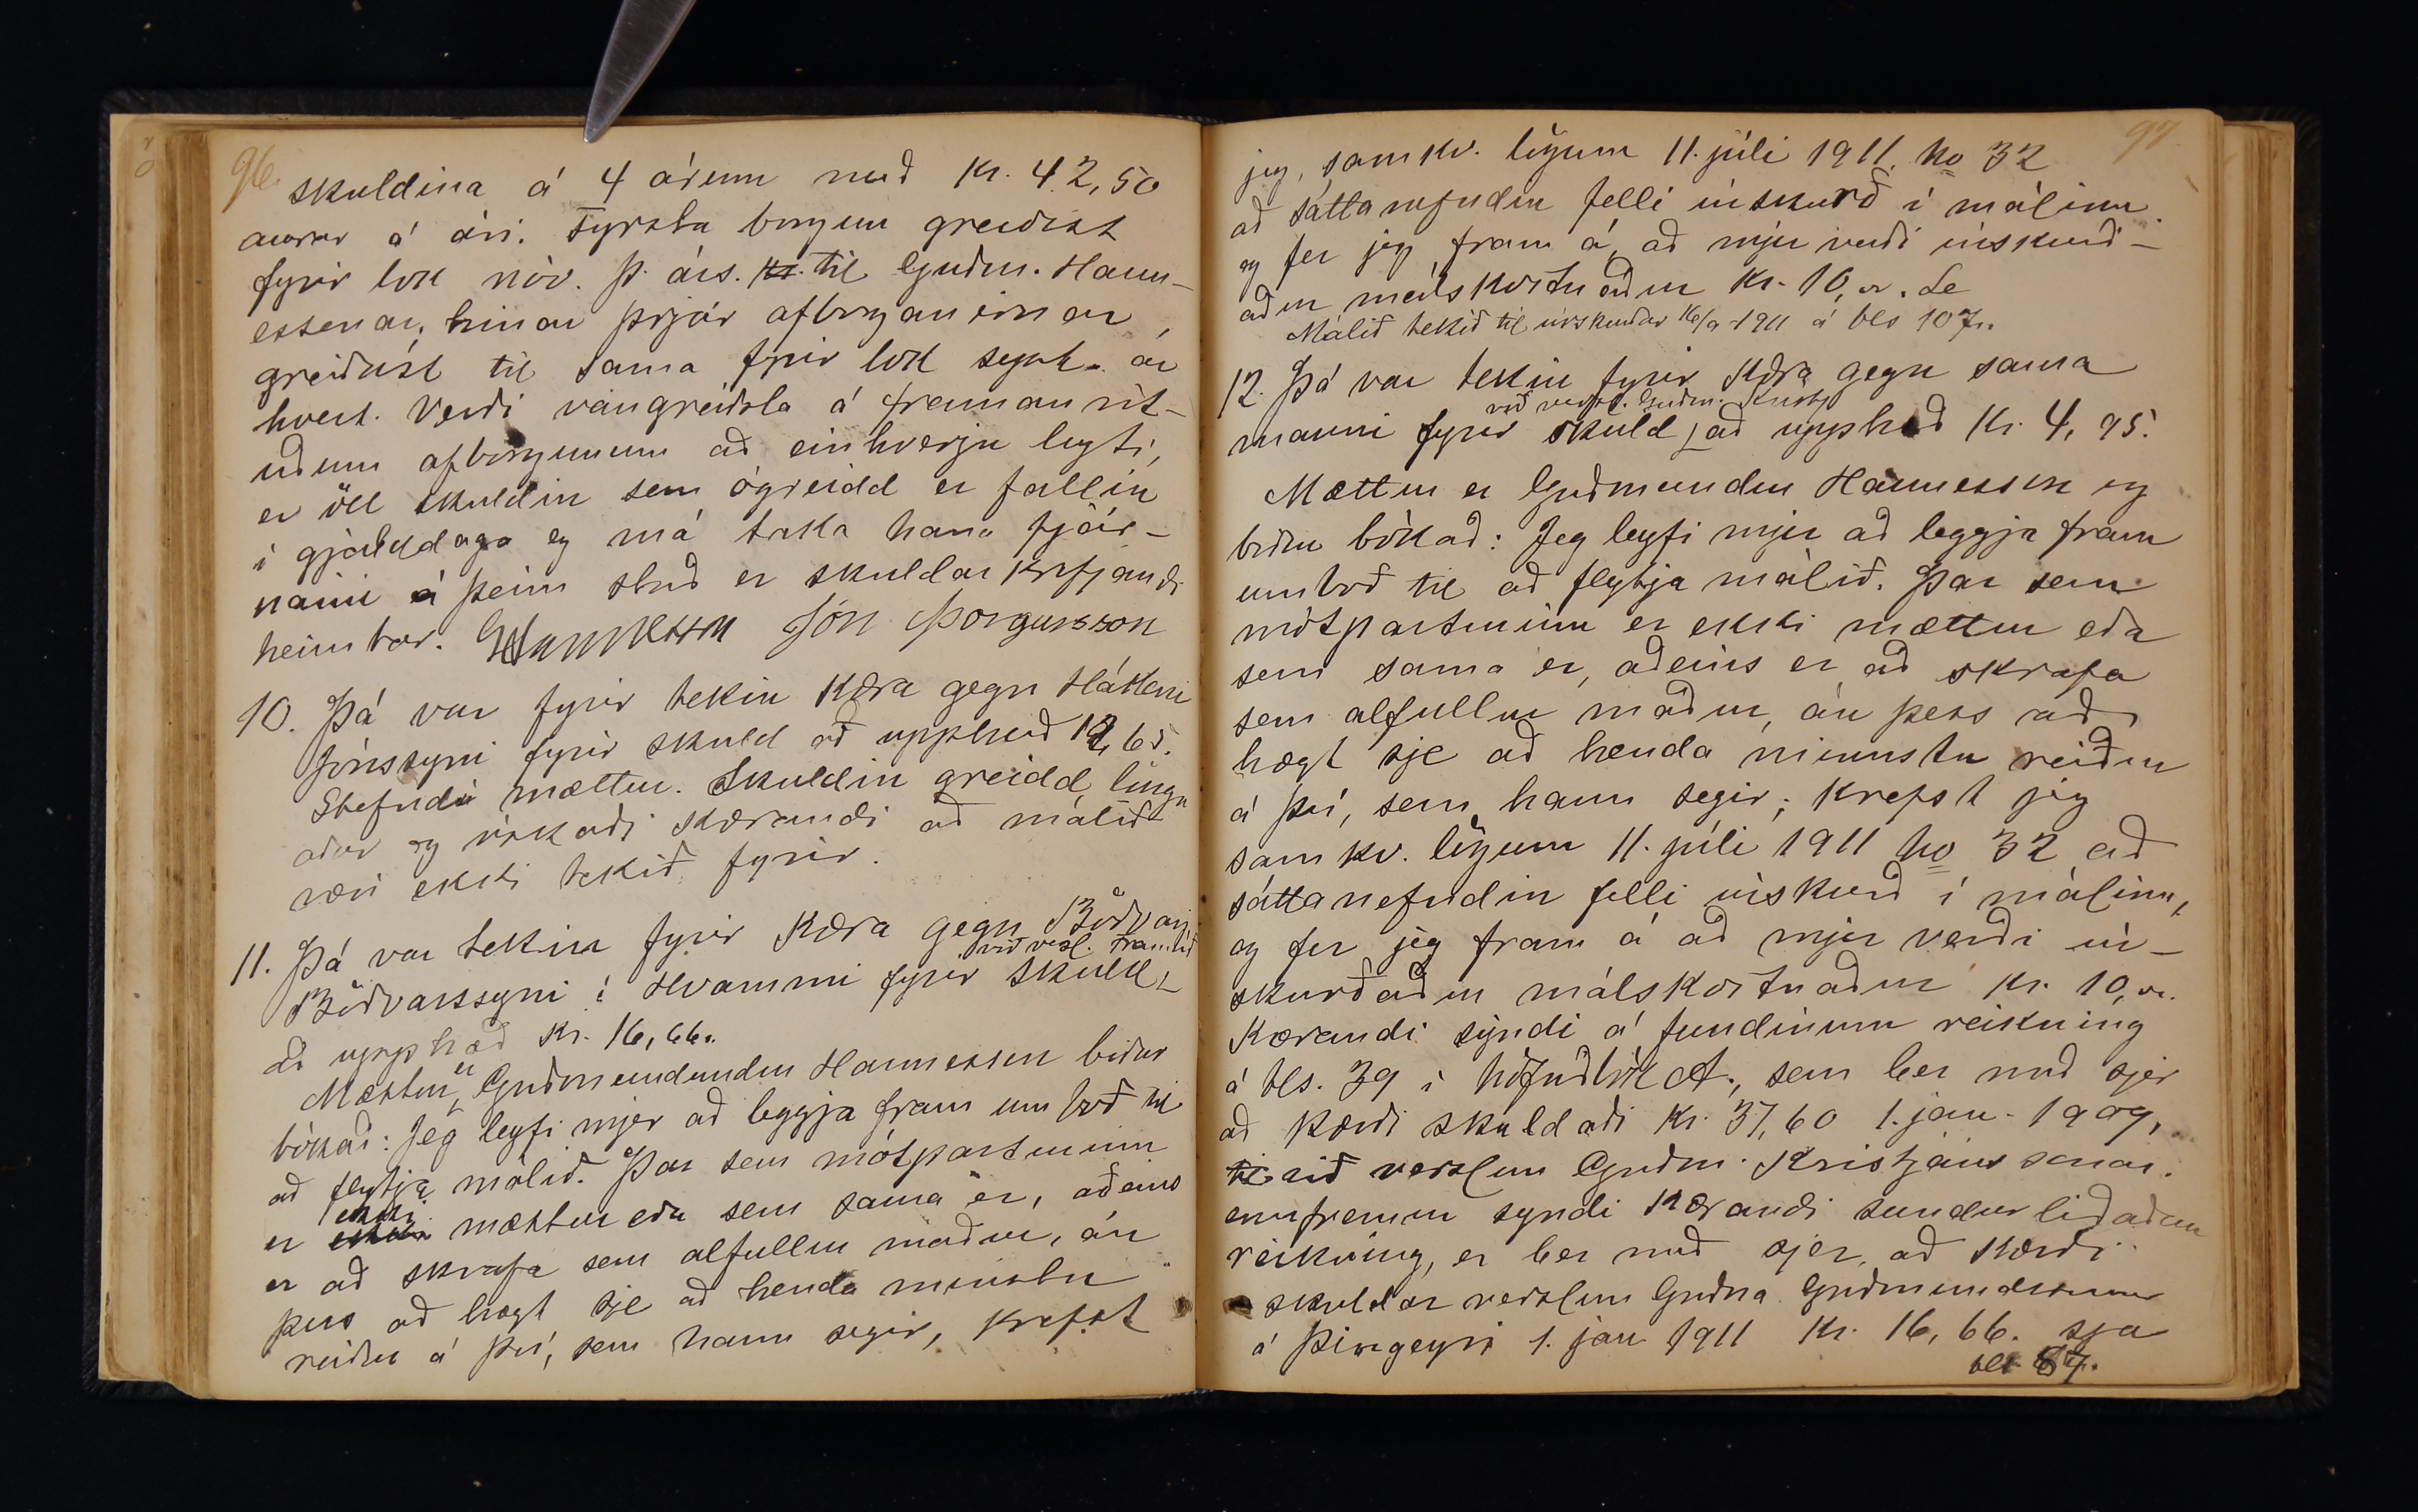 96.
skuldina á 4 árum með kr. 42,50
aurar á ári. Fyrsta borgun greiðist
fyrir lok nóv. þ. árs. til Guðm. Hann-
essonar, hinar þrjár afborganirnar,
greiðast til sama fyrir lok sept. ár
hvert. Verði vangreiðsla á framanrit-
uðum afborgunum að einhverju leyti,
er öll skuldin sem ógreidd er fallin
í gjalddaga og má taka hana fjár-
námi á þeim stað er skuldar krefjandi
heimtar. GHannesson Jón Þorgursson
10. Þá var fyrir tekin kæra gegn Hákoni
Jónssyni fyrir skuld að upphæð 12,65.
Stefndi mættur. Skuldin greidd, lúngu
aður og óskaði kærandi að málið
væri ekki tekið fyrir.
11. Þá var tekin fyrir kæra gegn Böðvari
við versl. Framtíð
Böðvarssyni í Hvammi fyrir skuld
að upphæð kr. 16,66.
Mættur er Guðmundundur Hannesson biður
bókað: Jeg leyfi mjer að leggja fram umboð til
að flytja málið. Þar sem mótparturinn
er ekki mættur eða sem sama er, aðeins
er að skrafa sem alfullur maður, án
þess að hægt sje að henda minstu
reiður á því, sem hann segir, krefst
97
jeg, samkv. lögum 11. júli 1911. No 32
að sáttanefndin felli úrskurð í málinu
og fer jeg fram á, að mjer verði úrskurð-
aður málskostnaður kr. 10,00.
Málið tekið til úrskurðar 16/9 1911 á bls 107.
12. Þá var tekin fyrir kæra gegn sama
við versl. Guðm. Kristj
manni fyrir skuld að upphæð kr. 4,95.
Mættur er Guðmundur Hannesson og
biður bókað: Jeg leyfi mjer að leggja fram
umboð til að flytja málið. Þar sem
mótparturinn er ekki mættur eða
sem sama er, aðeins er að skrafa
sem alfullur maður, án þess að
hægt sje að henda minnstu reiður
á því, sem hann segir; krefst jeg
samkv. lögum 11. júli 1911 No 32 að
sáttanefndin felli úrskurð í málinu,
og fer jeg fram á að mjer verði úr-
skurðaður málskostnaður kr. 10,00.
Kærandi sýndi á fundinum reikning
á bls. 39 í höfuðbók A., sem ber með sjer
að kærði skuldaði kr. 37,60 1. jan. 1909,
við verslun Guðm. Kristjánssonar.
ennfremur syndi kærandi sundurliðaðan
reikning, er ber með sjer, að kærði
skuldar verslun Guðna Guðmundssonar
á Þingeyri 1. jan 1911 kr. 16,66. sja
bls 87.